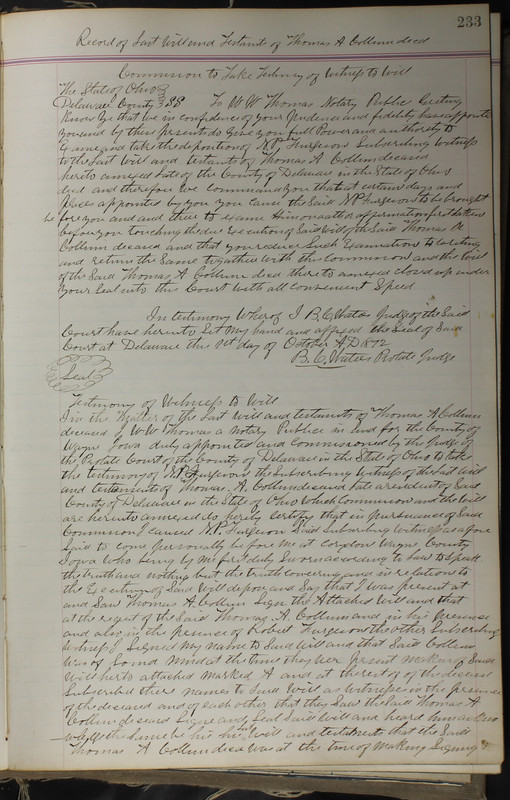 233
Record of Last Will and Testant of Thomas A Collum decd
Commision to Take Testimony of Witness to Will
The State of Ohio
Delaware County SS To W W Thomas Notary Public Greeting
Know Ye that we in confidence of your prudence and fidelity have appointed
you and by these presents do give you full Power and authority to
Examine and take the deposition of N P Furgeson Subscribing Witness
to the Last Will and testant of Thomas A Collum deceased
hereto annexed late of the County of Delaware in the State of Ohio
decd and therefore we command you that at certain days and
places appointed by you you cause the Said N P Furgeson to be brought
before you and and there to examine Him on oath or affirmation first taken
before you touching the due Execution of Said Will of the Said Thomas A
Collum deceased and that you reduce Such Examination to writing
and return the Same together with the commision and the Will
of the Said Thomas A Collum decd there to annexed closed up under
your Seal into this Court with all convenient Speed
In testimony Whereof I B. C. Waters Judge of the Said
Court have hereunto Set My hand and affixed the Seal of Said
Court at Delaware this 1st day of October A.D. 1872
B. C. Waters Probate Judge
Seal
Testimony of Witness to Will
In the Matter of the Last Will and testament of Thomas A Collum
deceased I W W Thomas a Notary Public in and for the County of
Wayne Iowa duly appointed and Commissioned by the Judge of
the Probate Court of the County of Delaware in the State of Ohio to take
the testimony of N P Furgeson the Subscribing Witness of the Last Will
and testaments of Thomas A. Collum deceased late a resident of Said
County of Delaware in the State of Ohio Which Commision and the Will
are hereunto annexed do hereby certify that in pursuance of Said
Commision I caused N. P. Furgeson Said Subscribing Witness as afore
Said to come personally before me at Corydon Wayne County
Iowa Who being by me first duly Sworn according to Law to Speak
the truth and nothing but the truth concerning and in relation to
the Execution of Said Will depose and Say that I was present at
and Saw Thomas A. Collum Sign the Attached Will and that
at the request of the Said Thomas A Collum and in his presense
and also in the presence of Robert Furgeson the other Subscribing
Witness I Signed my name to Said Will and that Said Collum
Was of Sound Mind at the time
Will hereto attached Marked A and at the request of the deceased
Subscribed there names to Said Will as Witnesses in the presence
of the deceased and of each other that they Saw the Said Thomas A
Collum deceased Signe and Seal Said Will and heard him
the Same be his Last Will and testament that the Said
Thomas A Collum decd was at the time of Making Signing